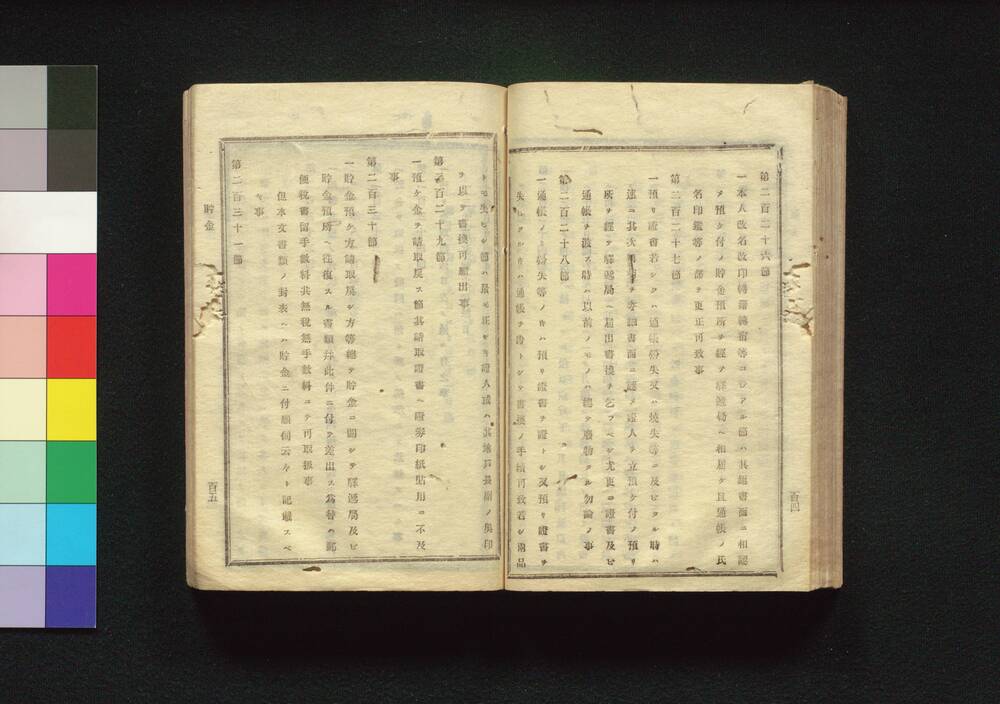 第二百二十六節
一本人改名改印轉籍轉宿等ノアル節ハ其趣書面ニ相認
メ預ケ付ノ貯金預所ヲ經テ驛遞局ヘ相屆ケ且通帳ノ氏
名印鑑等ノ部ヲ更正可致事
第二百二十七節
一預リ證書若シクハ通帳紛失又ハ燒失等ニ及ビタル時ハ
速ニ其次第ヲ委細書面ニ認メ證人ヲ立預ケ付ノ預リ
所ヲ經テ驛遞局ヘ屆出書換ヲ乞フベシ尤更ニ證書及ビ
通帳ヲ渡ス時ハ以前ノモノハ總テ廢物タル勿論ノ事
第二百二十八節
一通帳ノミ紛失等ノ時ハ預リ證書ヲ證トシ又預リ證書ヲ
失ヒタル時ハ通帳ヲ證トシテ書換ノ手續可致若シ兩品
トモ失ヒシ節ハ最モ正シキ證人或ハ其地戸長副ノ奥印
ヲ以テ書換可願出事
第二百二十九節
一預ケ金ヲ請取戻ス節其請取證書ヘ證劵印紙貼用ニ不及
事
第二百三十節
一貯金預ケ方請取戻シ方等總テ貯金ニ關シテ驛遞局及ビ
貯金預所ヘ往復スル書類幷此件ニ付テ差出ス爲替ハ郵
便税書留手數料共無税無手數料ニテ可取扱事
但本文書類ノ封表ヘハ貯金ニ付願伺云々ト記載スベ
キ事
第二百三十一節
貯金
百四
百五